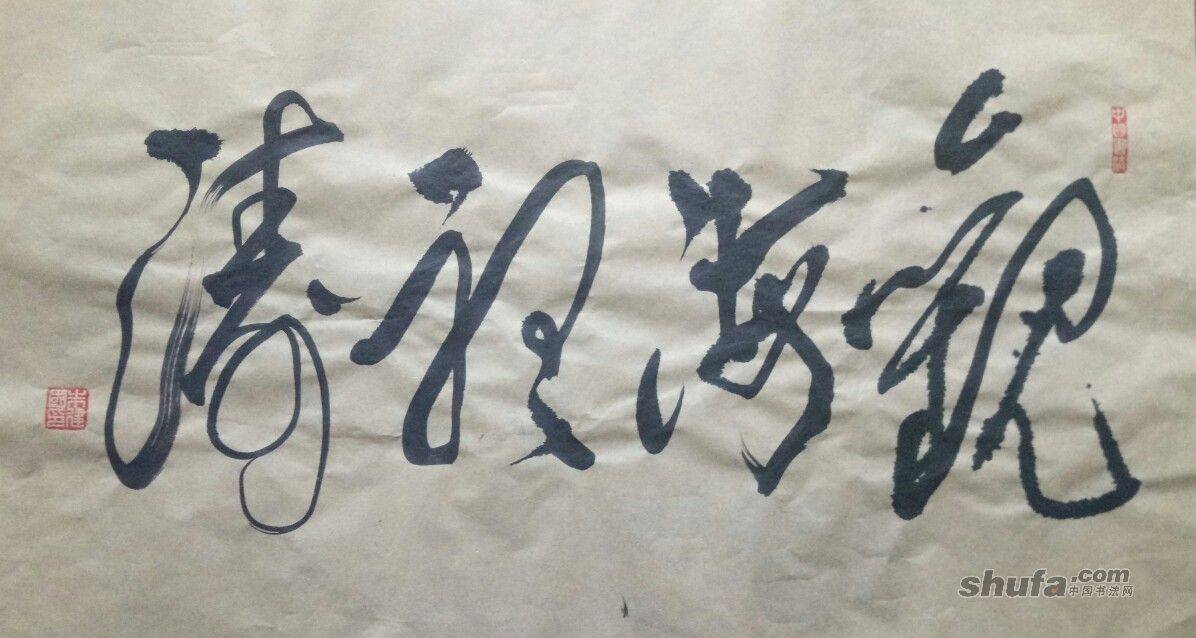 觀海聽濤
朱建國印
shufa.com
中国书法网